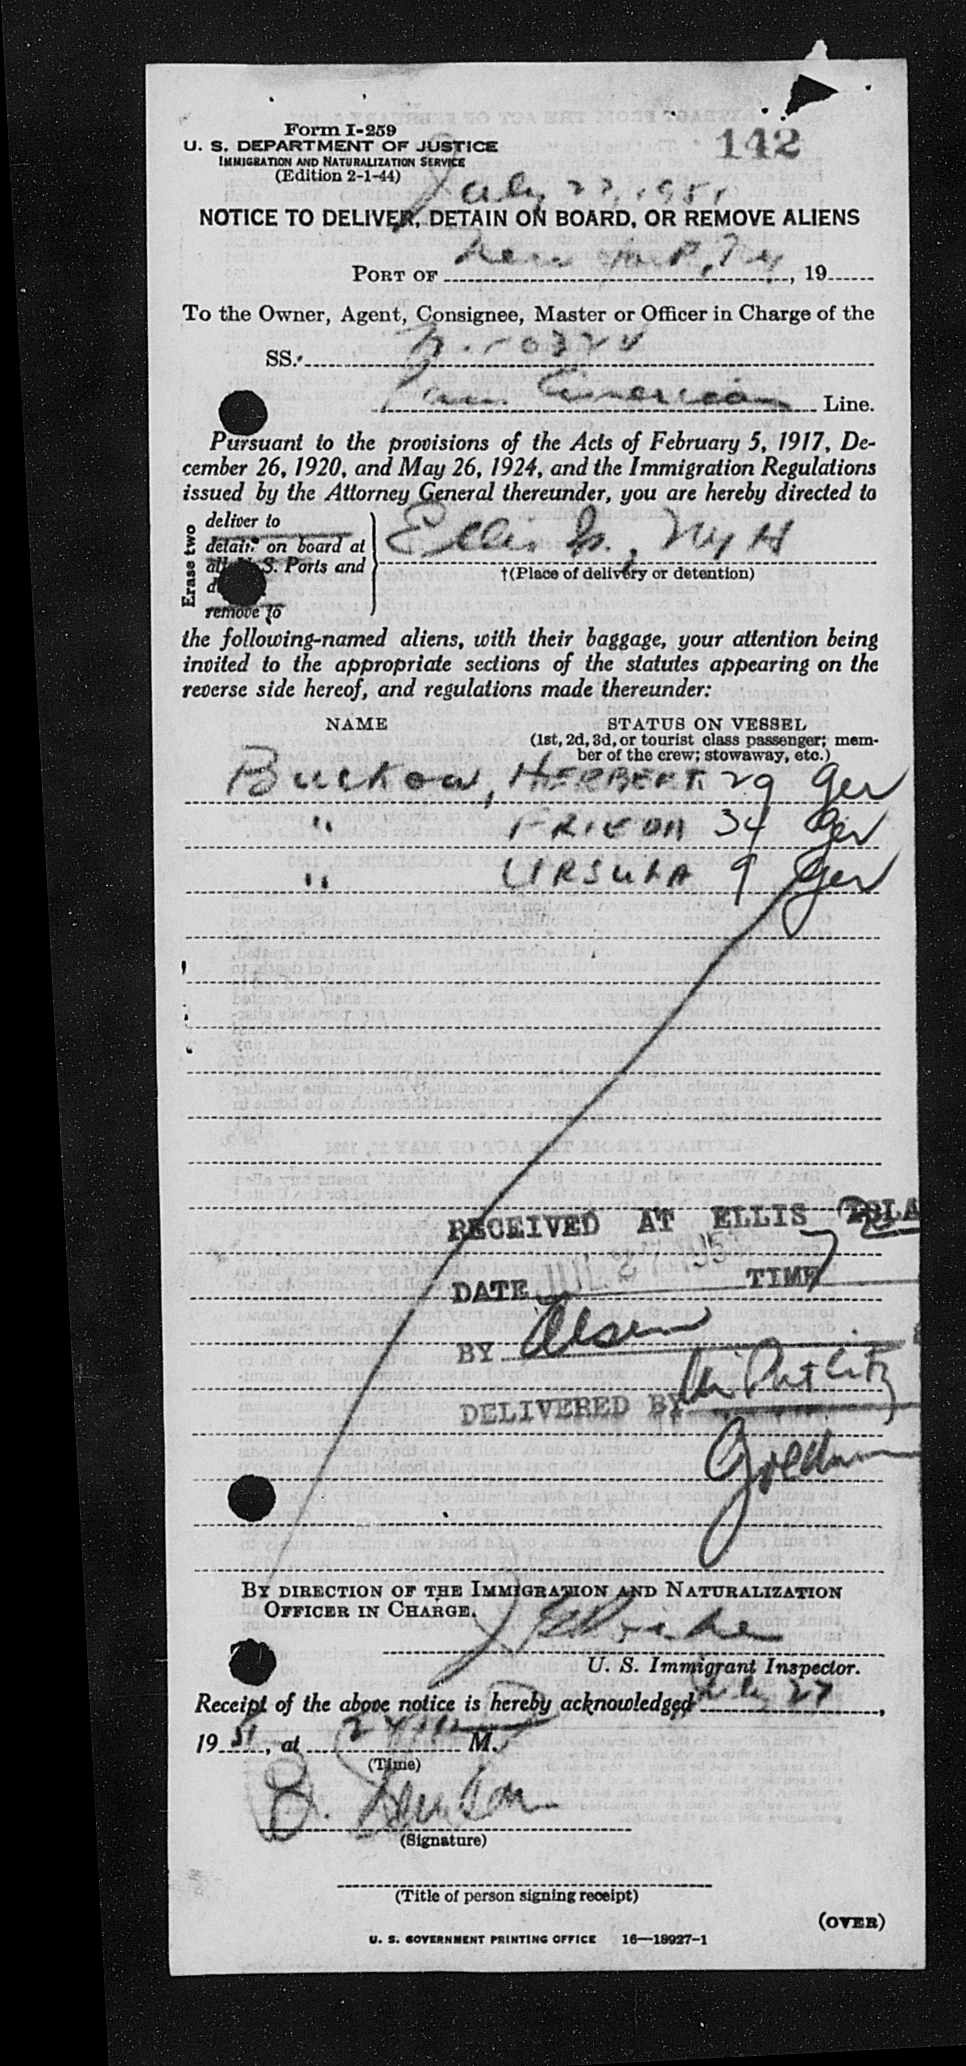 Form I-259
142
U. S. DEPARTMENT OF JUSTICE
IMMIGRATION AND NATURALIZATION SERVICE
(Edition 2-1-44)
July 27, 1951
NOTICE TO DELIVER, DETAIN ON BOARD, OR REMOVE ALIENS
PORT OF New York, Ny, 19
To the Owner, Agent, Consignee, Master or Officer in Charge of the
SS.
Pan American Line.
Pursuant to the provisions of the Acts of February 5, 1917, De-
cember 26, 1920, and May 26, 1924, and the Immigration Regulations
issued by the Attorney General thereunder, you are hereby directed to
Erase two
deliver to
detain on board at
all U. S. Ports and
remove to
Ellis Is., Ny H
†(Place of delivery or detention)
the following-named aliens, with their baggage, your attention being
invited to the appropriate sections of the statutes appearing on the
reverse side hereof, and regulations made thereunder:
NAME STATUS ON VESSEL
(1st, 2d, 3d, or tourist class passenger; mem-
ber of the crew; stowaway, etc.)
Buckow, HERBERT 29 Ger
" FRIEDA 34 Ger
" URSULA 9 Ger
RECEIVED AT ELLIS ISLA
DATE JUL 27 195 TIME
BY Olsen
DELIVERED BY
BY DIRECTION OF THE IMMIGRATION AND NATURALIZATION
OFFICER IN CHARGE.
U. S. Immigrant Inspector.
Receipt of the above notice is hereby acknowledged July 27,
19 51, at M.
(Time)
(Signature)
(Title of person signing receipt)
(OVER)
U. S. GOVERNMENT PRINTING OFFICE 16—18927-1